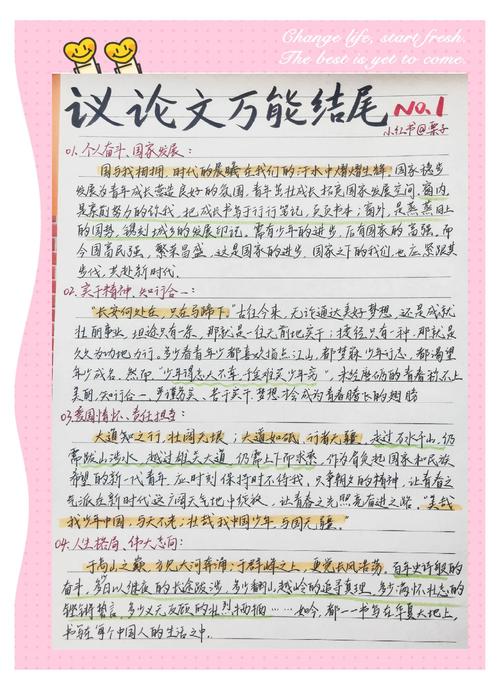 Change life, start fresh.
The best is yet to come.
议论文万能结尾 No.1
小红书@栗子
01.个人奋斗、国家发展：
国与我相拥，时代的晨曦在我们的汗水中熠熠生辉，国家稳步
发展为青年成长营造良好的氛围，青年茁壮成长拓宽国家发展空间，窗内，
是亲勤努力的你我，把成长书写于行行笔记，页页书本；窗外，是蒸蒸日上
的国势，镌刻城乡的发展印记。需有少年的进步，后有国家的高强。而
今国富民强，繁荣昌盛，这是国家的进步，国家之下的我们，也应紧跟其
步伐，共赴新时代。
02.实干精神、知行合一：
“长安何处在，只在马蹄下。”古往今来，无论通达美好梦想，还是成就
壮丽事业，坦途只有一条，那就是一往无前地实干；捷径只有一种，那就是
久久为功地力行。多少青年都喜欢指点江山，都梦寐少年行志，都渴望
年少成名。然而“少年得志人不幸，千金难买少年穷”，未经磨砺的青春称不上
美丽，知行合一、笃谨务实、苦干实干，梦想才会成为青春腾飞的翅膀
03.爱国情怀、责任担当：
大道知之行，壮阔无垠；大道如砥，行者无疆。走过万水千山，仍
需跋山涉水，越过雄关大道，仍需上下而求索。作为肩负起国家和民族
希望的新一代青年，应时刻保持时不待我，只争朝夕的精神，让青春之
气派在新时代这广阔天气地中绽放，让青春之光照亮奋进之路。“美哉
我少年中国，与天不老，壮哉我中国少年，与国无疆。”
04.人生格局、伟大志向：
于高山之巅，方见大河奔涌；于群峰之上，更觉长风浩荡。百年史诗般的
奋斗，多日以继夜的长途跋涉，多少翻山越岭的追寻真理，多少满怀壮志的
铿锵誓言，多少义无反顾的壮烈牺牲……如今，都一一书写在华夏大地上，
书写在每个中国人的生活之中。